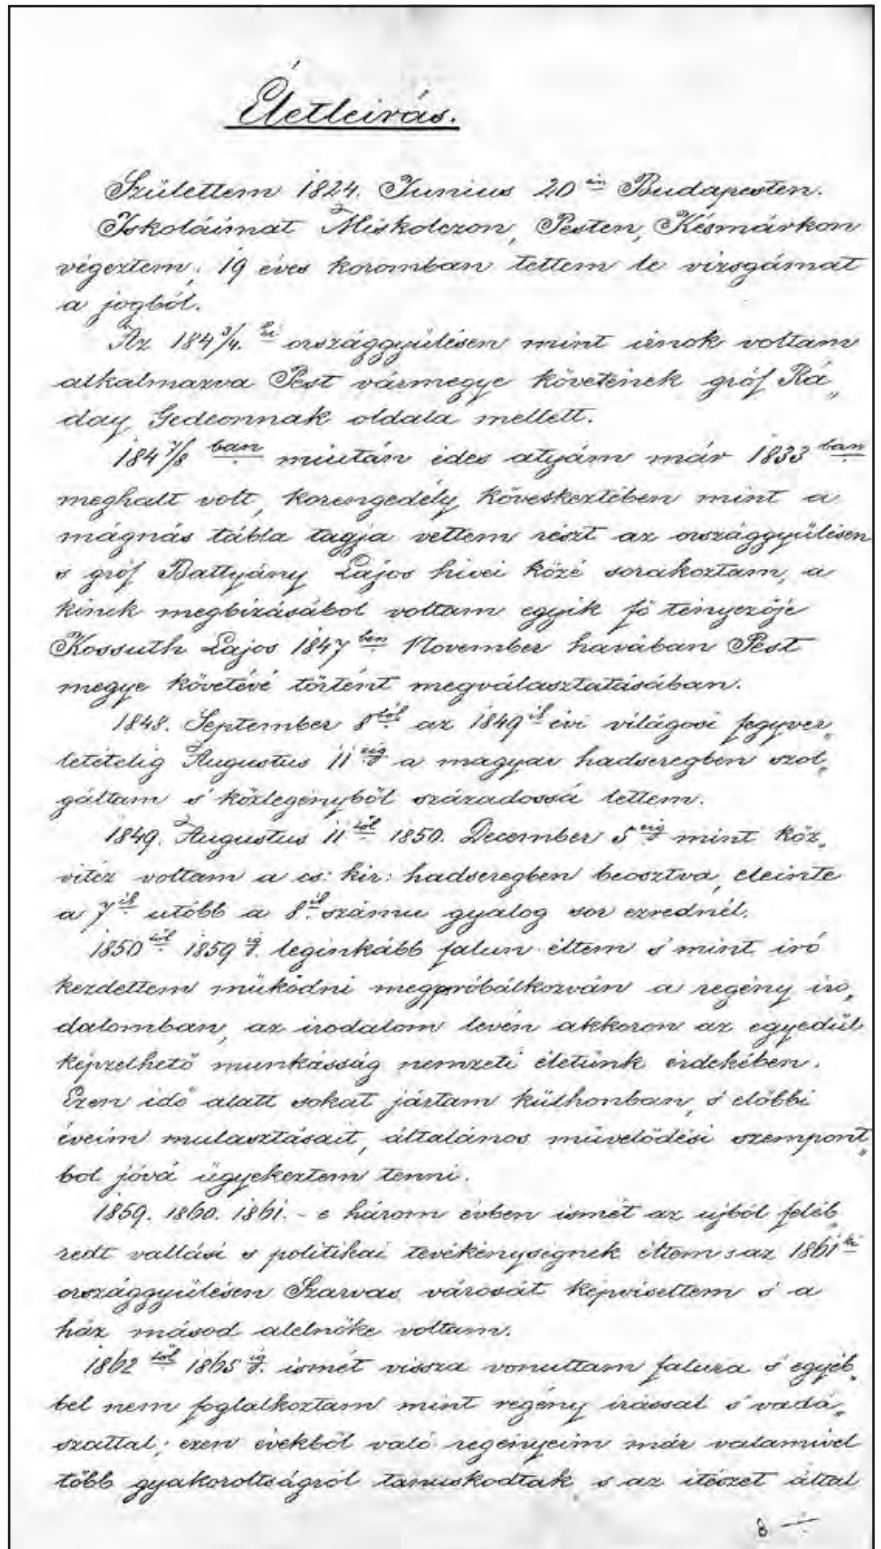 Életleirás.
Születtem 1824. Junius 20 in Budapesten.
Iskoláimat Miskolczon, Pesten, Késmárkon
végeztem, 19 éves koromban tettem le vizsgámat
a jogból.
Az 184 3/4. ki országgyülésen mint irnok voltam
alkalmazva Pest vármegye követének gróf Rá„
day Gedeonnak oldala mellett.
184 7/8 ban miután édes atyám már 1833 ban
meghalt volt, korengedély következtében mint a
mágnás tábla tagja vettem részt az országgyülésen
s gróf Battyány Lajos hivei közé sorakoztam, a
kinek megbizásábol voltam egyik fő tényezője
Kossuth Lajos 1847 ben November havában Pest
megye követévé történt megválasztatásában.
1848. September 8 tól az 1849 ik évi világosi fegyver„
letételig Augustus 11 éig a magyar hadseregben szol„
gáltam s' közlegényből századossá lettem.
1849. Augustus 11 től 1850. December 5 éig mint köz„
vitéz voltam a cs: kir: hadseregben beosztva, eleinte
a 7 ik utóbb a 8 ik számu gyalog sor ezrednél.
1850 től 1859 ig. leginkább falun éltem s' mint iró
kezdettem működni megpróbálkozván a regény iro„
dalomban, az irodalom levén akkoron az egyedül
képzelhető munkásság nemzeti életünk érdekében.
Ezen idő alatt sokat jártam külhonban, s' előbbi
éveim mulasztásait, általános müvelődési szempont„
bol jóvá ügyekeztem tenni.
1859. 1860. 1861. - e három évben ismét az ujból feléb„
redt vallási s politikai tevékenységnek éltem s az 1861 ki
országgyülésen Szarvas városát képviseltem s' a
ház másod alelnöke voltam.
1862 től 1865 ig. ismét vissza vonultam falura s' egyéb„
bel nem foglalkoztam mint regény irással s' vadá„
szattal; ezen évekből való regényeim már valamivel
több gyakorottságról tanuskodtak, s az itészet által